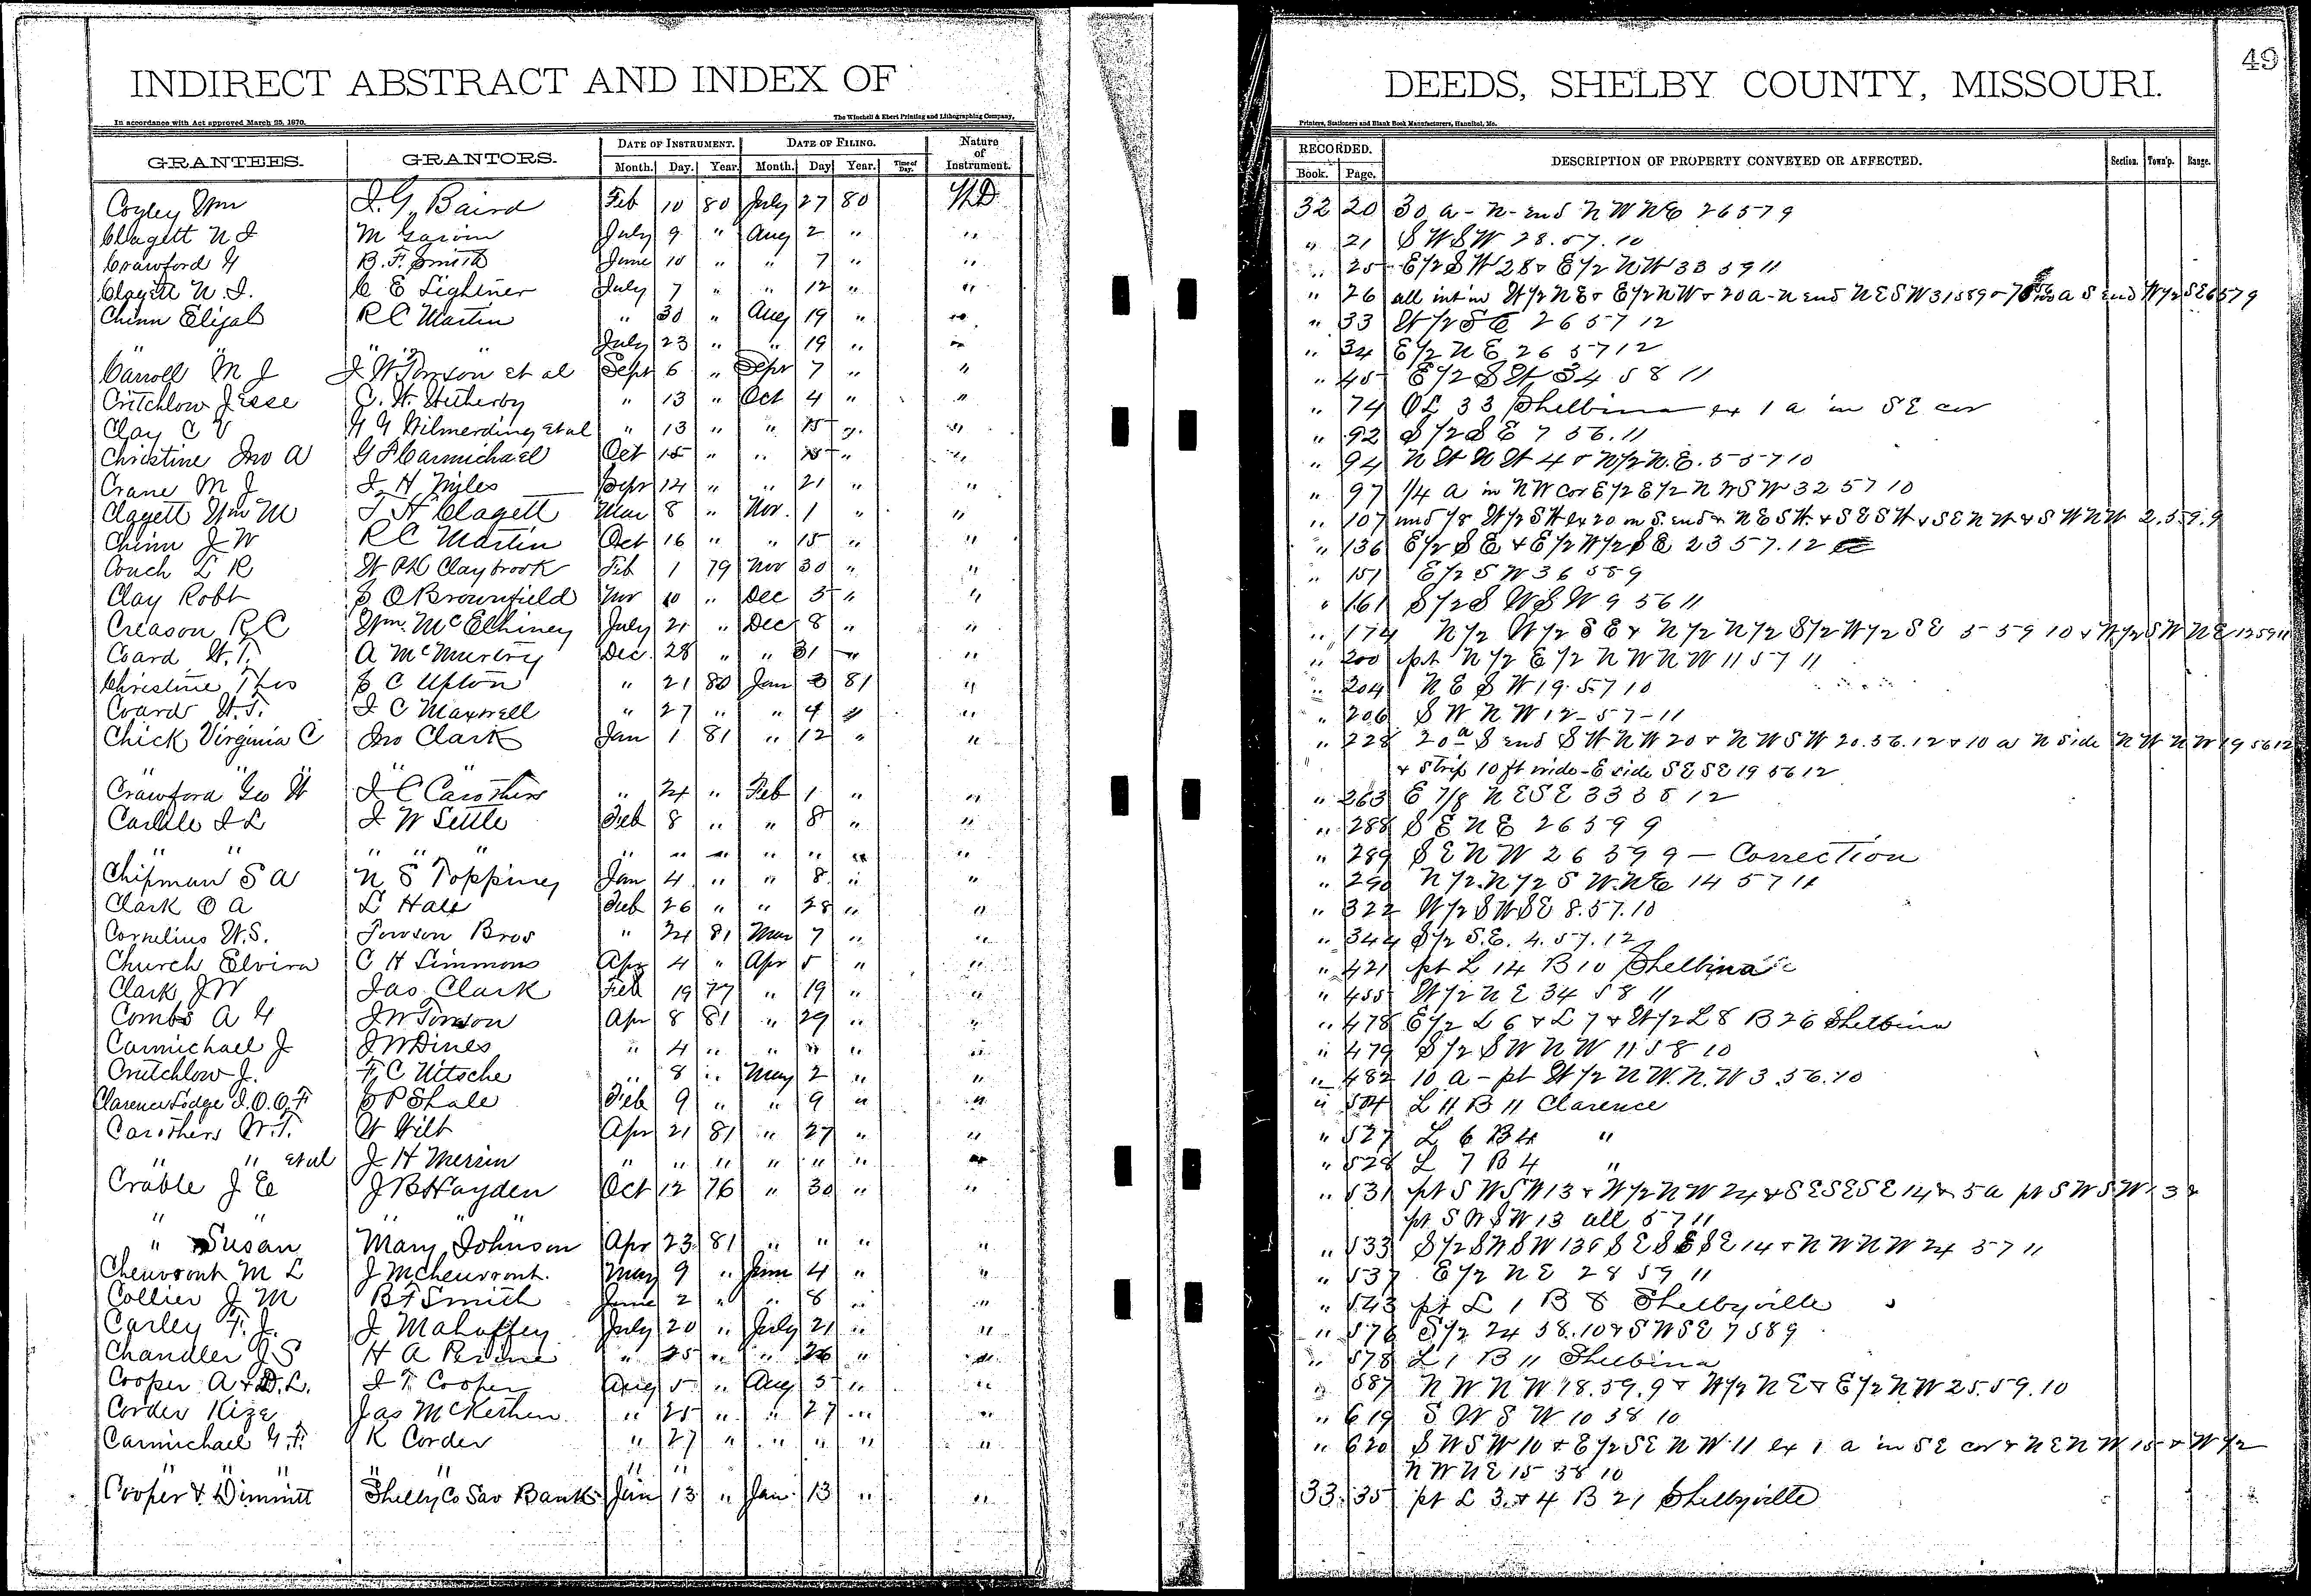 49
INDIRECT ABSTRACT AND INDEX OF DEEDS, SHELBY COUNTY, MISSOURI.
In accordance with Act approved March 25, 1870. The Winchell & Ebert Printing and Lithographing Company, Printers, Stationers and Blank Book Manufacturers, Hannibal, Mo.
GRANTEES. GRANTORS. DATE OF INSTRUMENT. DATE OF FILING. Nature of Instrument. RECORDED. DESCRIPTION OF PROPERTY CONVEYED OR AFFECTED. Section. Town'p. Range.
Month. Day. Year. Month. Day Year. Time of Day. Book. Page.
Coyley Wm J. G. Baird Feb 10 80 July 27 80 WD 32 20 30 a - N - end NWNE 26 57 9
Clagett N J M Garvin July 9 " Aug 2 " " " 21 SWSW 28.57.10
Crawford G B. F. Smith June 10 " " 7 " " " 25 E/2 SW 28 & E/2 NW 33 59 11
Clagett N. J. C E Lightner July 7 " " 12 " " " 26 all int in W/2 NE & E/2 NW & 20 a - N end NESW 31 58 9 & a S end W/2 SE 6 57 9
Chinn Elijah R C Martin " 30 " Aug 19 " " " 33 W/2 SE 26 57 12
" " " " July 23 " " 19 " " " 34 E/2 NE 26 57 12
Carroll M J J W Towson et al Sept 6 " Sepr 7 " " " 45 E/2 SW 34 58 11
Critchlow Jesse C. W. Hetherby " 13 " Oct 4 " " " 74 OL 33 Shelbina ex 1 a in SE cor
Clay C V G G Wilmerding et al " 13 " " 15 " " " 92 S/2 SE 7 56.11
Christine Jno A G F Carmichael Oct 15 " " 15 " " " 94 NWNW 4 & N/2 N.E. 5 57 10
Crane M J J. H Miles Sepr 14 " " 21 " " " 97 1/4 a in NW cor E/2 E/2 NWSW 32 57 10
Clagett Wm M T H Clagett Mar 8 " Nov. 1 " " " 107 und 1/8 W/2 SW ex 20 on S. end & NESW. & SESW & SENW & SWNW 2.59.9
Chinn J W R C Martin Oct 16 " " 15 " " " 136 E/2 SE & E/2 W/2 SE 23 57.12
Couch L R W Ph Claybrook Feb 1 79 Nov 30 " " " 151 E/2 SW 36 58 9
Clay Robt E O Brownfield Nov 10 " Dec 3 " " " 161 S/2 SWSW 9 56 11
Creason R C Wm. McElhiney July 21 " Dec 8 " " " 174 N/2 W/2 SE & N/2 N/2 S/2 W/2 SE 5 59 10 & W/2 SWNE 12 59 11
Coard W. T. A McMurtry Dec. 28 " " 31 " " " 200 pt N/2 E/2 NWNW 11 57 11
Christine Thos E C Upton " 21 80 Jan 3 81 " " 204 NESW 19.57 10
Coard W. T. J C Maxwell " 27 " " 4 " " " 206 SWNW 12-57-11
Chick Virginia C Jno Clark Jan 1 81 " 12 " " " 228 20 a S end SWNW 20 & NWSW 20.56.12 & 10 a N side NWNW 19 56 12
" " " & Strip 10 ft wide - E side SESE 19 56 12
Crawford Geo W J C Carothers " 24 " Feb 1 " " " 263 E 7/8 NESE 33 58 12
Carlile J L J W Settle Feb 8 " " 8 " " " 288 SENE 26 59 9
" " " " " " " " " " " " " 289 SENW 26 59 9 - Correction
Chipman S A N S Topping Jan 4 " " 8 " " " 290 N/2.N/2 SW.NE 14 57 11
Clark O A L Hale Feb 26 " " 28 " " " 322 W/2 SWSE 8.57.10
Cornelius W. S. Towson Bros " 24 81 Mar 7 " " " 344 S/2 S.E. 4.57.12
Church Elvira C H Simmons Apr 4 " Apr 5 " " " 421 pt L 14 B 10 Shelbina
Clark J W Jas Clark Feb 19 77 " 19 " " " 455 W/2 NE 34 58 11
Combs A G J W Towson Apr 8 81 " 29 " " " 478 E/2 L 6 & L 7 & W/2 L 8 B 26 Shelbina
Carmichael J J W Dines " 4 " " " " " " 479 S/2 SWNW 11 58 10
Critchlow J. F. C Nitsche " 8 " May 2 " " " 482 10 a - pt W/2 NW.N.W 3.56.10
Clarence Lodge I.O.O.F C P Shale Feb 9 " " 9 " " " 504 L 11 B 11 Clarence
Carothers W. T. W Wilt Apr 21 81 " 27 " " " 527 L 6 B 4 "
" " et al J H Merrin " " " " " " " " 528 L 7 B 4 "
Crable J E J B Hayden Oct 12 76 " 30 " " " 531 pt SWSW 13 & W/2 NW 24 & SESESE 14 & 5 a pt SWSW 13 &
" " pt SWSW 13 all 57 11
" Susan Mary Johnson Apr 23 81 " " " " " 533 S/2 SWSW 13 & SESESE 14 & NWNW 24 57 11
Cheuvront M L J M Cheuvront. May 9 " June 4 " " " 537 E/2 NE 28 59 11
Collier J M B F Smith June 2 " " 8 " " " 543 pt L 1 B 8 Shelbyville
Carley F. J. J Mahaffey July 20 " July 21 " " " 576 S/2 24 58.10 & SWSE 7 58 9
Chandler J S H A Perine " 25 " " 26 " " " 578 L 1 B 11 Shelbina
Cooper A & D. L. J T Cooper Aug 5 " Aug 5 " " " 587 NWNW 18.59.9 & W/2 NE & E/2 NW 25.59.10
Corder Kize Jas McKethen " 25 " " 27 " " " 619 SWSW 10 58 10
Carmichael G. F. K Corder " 27 " " " " " " 620 SWSW 10 & E/2 SENW 11 ex 1 a in SE cor & NENW 15 & W/2
" " " " " " " NWNE 15 58 10
Cooper & Dimmitt Shelby Co Sav Bank Jan 13 " Jan. 13 " " 33 35 pt L 3 & 4 B 21 Shelbyville